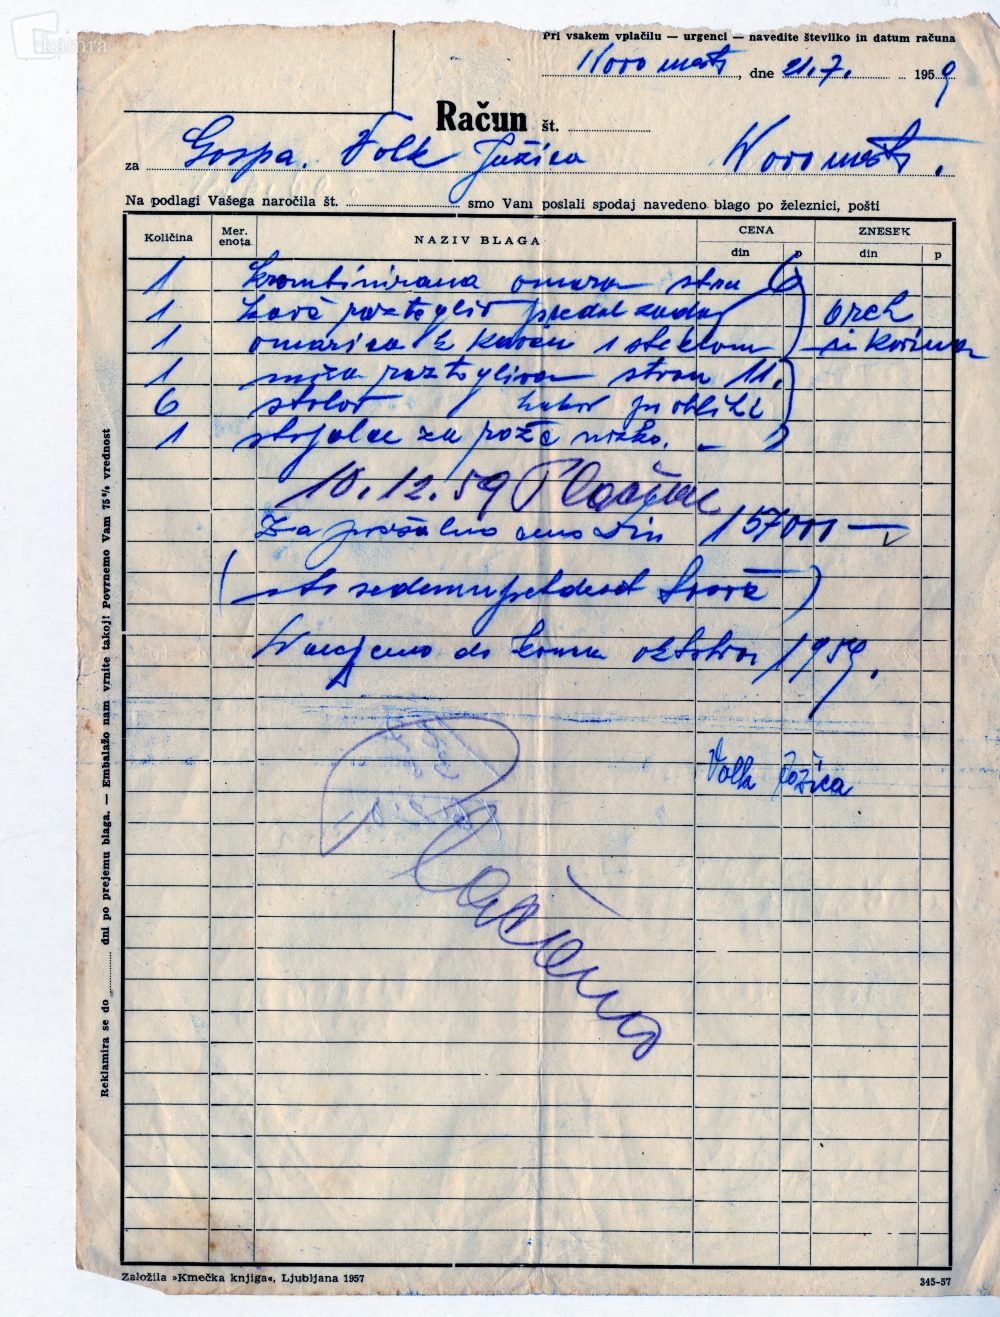 kamra
Pri vsakem vplačilu — urgenci — navedite številko in datum računa
Novo mesto, dne 21.7. 1959
Račun št.
za Gospa. Volk Jožica Novo mesto.
Na podlagi Vašega naročila št. smo Vam poslali spodaj navedeno blago po železnici, pošti
Količina Mer. enota NAZIV BLAGA CENA ZNESEK
din p din p
1 kombinirana omara stran 6
1 kavč raztegljiv predal zadaj oreh
1 omarica k kavču s steklom in
1 miza raztegljiva stran 11.
6 stolov po obliki
1 stojalce za rože nizko.
10.12.59 Plačan
Za din 157000 —
(sto sedeminpetdeset tisoč)
do konca oktobra 1959.
Volk Jožica
Plačano
Reklamira se do dni po prejemu blaga. — Embalažo nam vrnite takoj! Povrnemo Vam 75% vrednost
Založila »Kmečka knjiga«, Ljubljana 1957
345-57